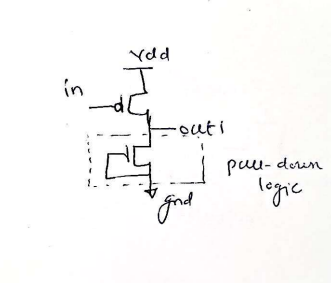 Vdd
in
out1
pull-down
logic
gnd